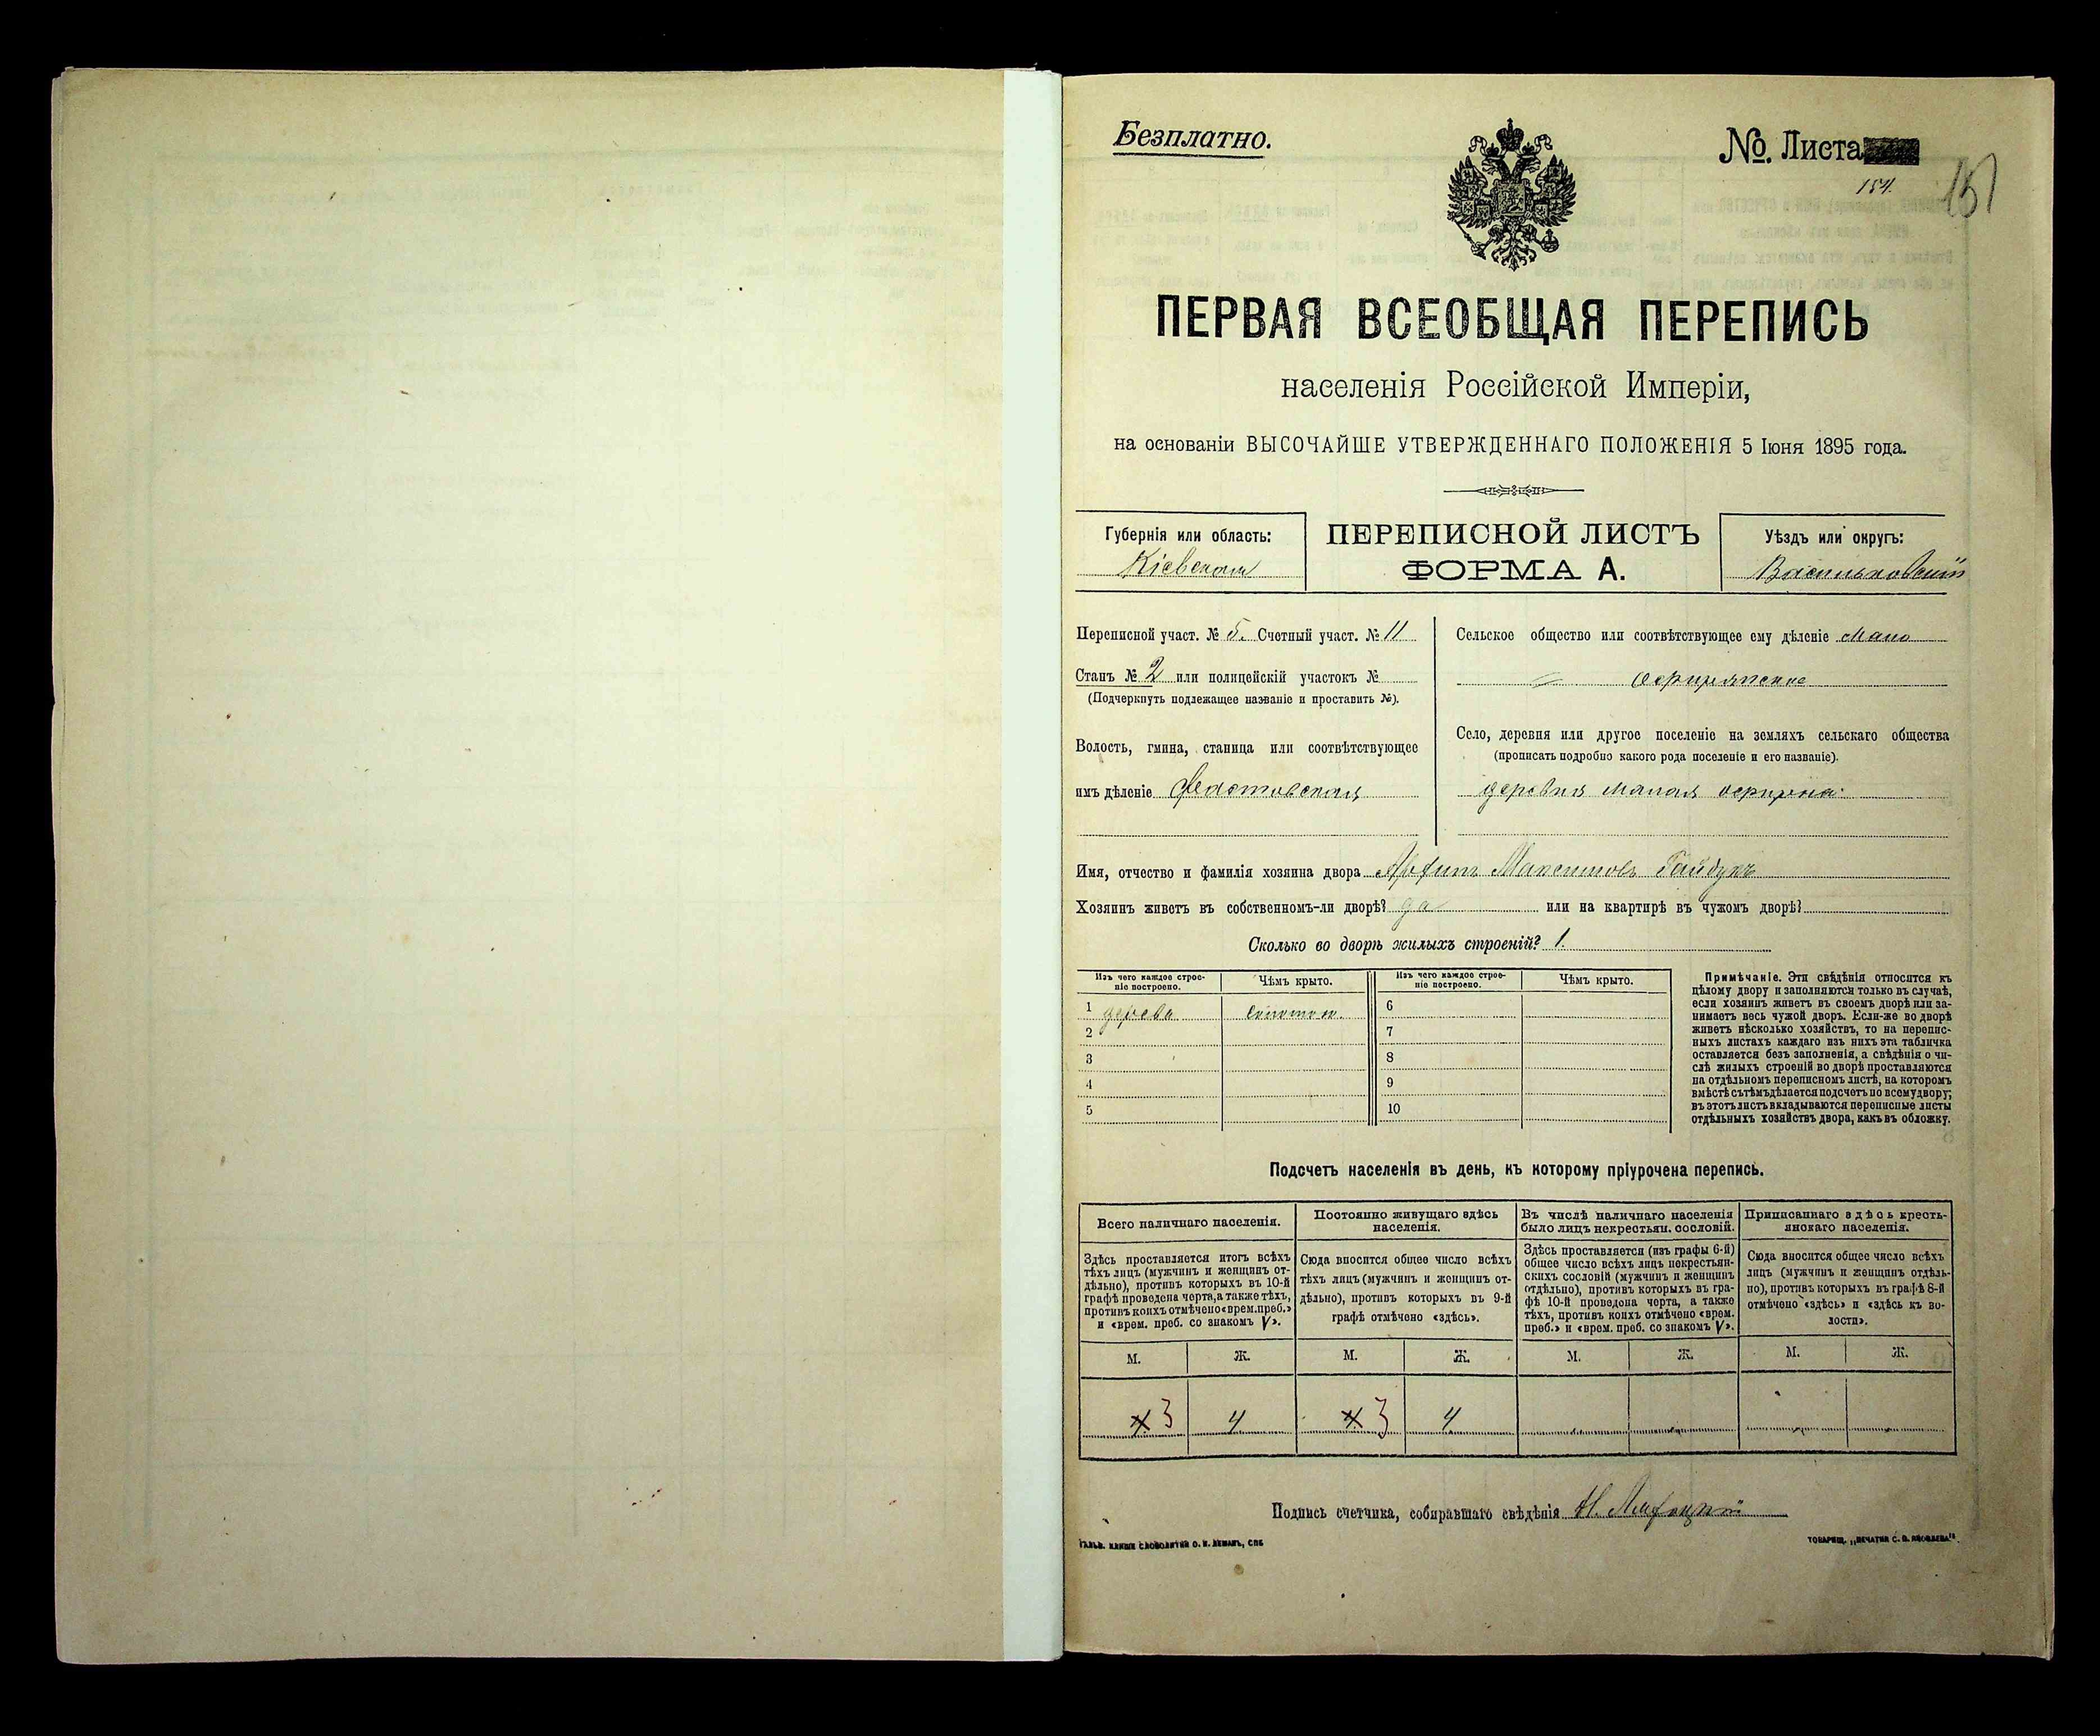 Безплатно.
No. Листа
154.
151
ПЕРВАЯ ВСЕОБЩАЯ ПЕРЕПИСЬ
населенія Россійской Имперіи,
на основаніи ВЫСОЧАЙШЕ УТВЕРЖДЕННАГО ПОЛОЖЕНІЯ 5 Іюня 1895 года.
Губернія или область:
Кіевская
ПЕРЕПИСНОЙ ЛИСТЪ
ФОРМА А.
Уѣздъ или округъ:
Васильковскій
Переписной участ. № 5. Счетный участ. № 11
Станъ № 2 или полицейскій участокъ №
(Подчеркнуть подлежащее названіе и проставить №).
Волость, гмина, станица или соотвѣтствующее
имъ дѣленіе Фастовская
Сельское общество или соотвѣтствующее ему дѣленіе Мало
=
Село, деревня или другое поселеніе на земляхъ сельскаго общества
(прописать подробно какого рода поселеніе и его названіе).
деревня малая
Имя, отчество и фамилія хозяина двора Максимовъ Гайдукъ
Хозяинъ живетъ въ собственномъ-ли дворѣ? да или на квартирѣ въ чужомъ дворѣ?
Сколько во дворѣ жилыхъ строеній? 1.
Изъ чего каждое строе-
ніе построено.
Чѣмъ крыто.
Изъ чего каждое строе-
ніе построено.
Чѣмъ крыто.
1 дерева соломой. 6
2 7
3 8
4 9
5 10
Примѣчаніе. Эти свѣдѣнія относятся къ
цѣлому двору и заполняются только въ случаѣ,
если хозяинъ живетъ въ своемъ дворѣ или за-
нимаетъ весь чужой дворъ. Если-же во дворѣ
живетъ нѣсколько хозяйствъ, то на перепис-
ныхъ листахъ каждаго изъ нихъ эта табличка
оставляется безъ заполненія, а свѣдѣнія о чи-
слѣ жилыхъ строеній во дворѣ проставляются
на отдѣльномъ переписномъ листѣ, на которомъ
вмѣстѣ съ тѣмъ дѣлается подсчетъ по всему двору;
въ этотъ листъ вкладываются переписные листы
отдѣльныхъ хозяйствъ двора, какъ въ обложку.
Подсчетъ населенія въ день, къ которому пріурочена перепись.
Всего наличнаго населенія.
Здѣсь проставляется итогъ всѣхъ
тѣхъ лицъ (мужчинъ и женщинъ от-
дѣльно), противъ которыхъ въ 10-й
графѣ проведена черта, а также тѣхъ,
противъ коихъ отмѣчено «врем. преб.»
и «врем. преб. со знакомъ V».
Постоянно живущаго здѣсь
населенія.
Сюда вносится общее число всѣхъ
тѣхъ лицъ (мужчинъ и женщинъ от-
дѣльно), противъ которыхъ въ 9-й
графѣ отмѣчено «здѣсь».
Въ числѣ наличнаго населенія
было лицъ некрестьян. сословій.
Здѣсь проставляется (изъ графы 6-й)
общее число всѣхъ лицъ некрестьян-
скихъ сословій (мужчинъ и женщинъ
отдѣльно), противъ которыхъ въ гра-
фѣ 10-й проведена черта, а также
тѣхъ, противъ коихъ отмѣчено «врем.
преб.» и «врем. преб. со знакомъ V».
Приписаннаго здѣсь кресть-
янскаго населенія.
Сюда вносится общее число всѣхъ
лицъ (мужчинъ и женщинъ отдѣль-
но), противъ которыхъ въ графѣ 8-й
отмѣчено «здѣсь» и «здѣсь къ во-
лости».
М. Ж. М. Ж. М. Ж. М. Ж.
3 4 3 4
Подпись счетчика, собиравшаго свѣдѣнія
ГАЛЬВ. КЛИШЕ СЛОВОЛИТНИ О. И. ЛЕМАНЪ, СПБ
ТОВАРИЩ. „ПЕЧАТНЯ С. П. ЯКОВЛЕВА“.